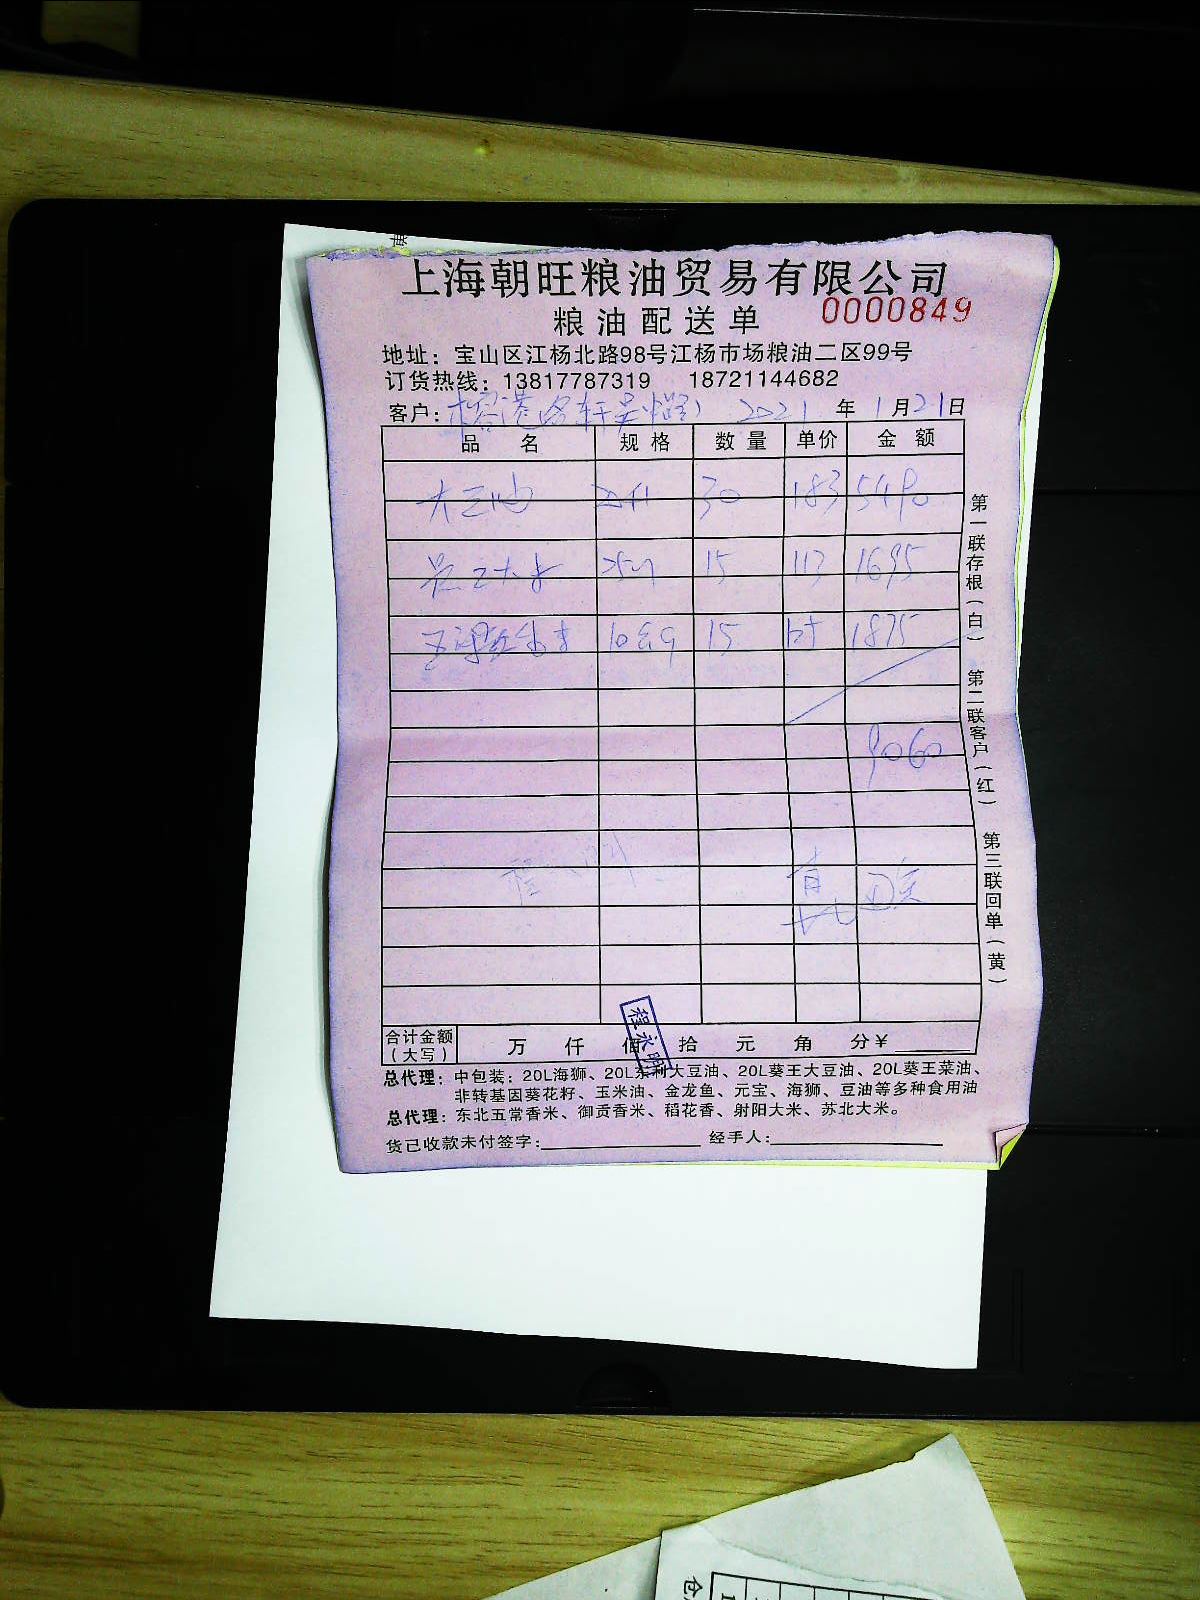 上海朝旺粮油贸易有限公司
粮油配送单 0000849
地址：宝山区江杨北路98号江杨市场粮油二区99号
订货热线：13817787319 18721144682
客户： 2021年1月21日
品名 规格 数量 单价 金额
大豆油 30 183 5490
15 113 1695
10kg 15 1875
9060
合计金额（大写） 万 仟 佰 拾 元 角 分¥
程永明
总代理：中包装：20L海狮、20L东利大豆油、20L葵王大豆油、20L葵王菜油、
非转基因葵花籽、玉米油、金龙鱼、元宝、海狮、豆油等多种食用油
总代理：东北五常香米、御贡香米、稻花香、射阳大米、苏北大米。
货已收款未付签字： 经手人：
第一联存根（白） 第二联客户（红） 第三联回单（黄）